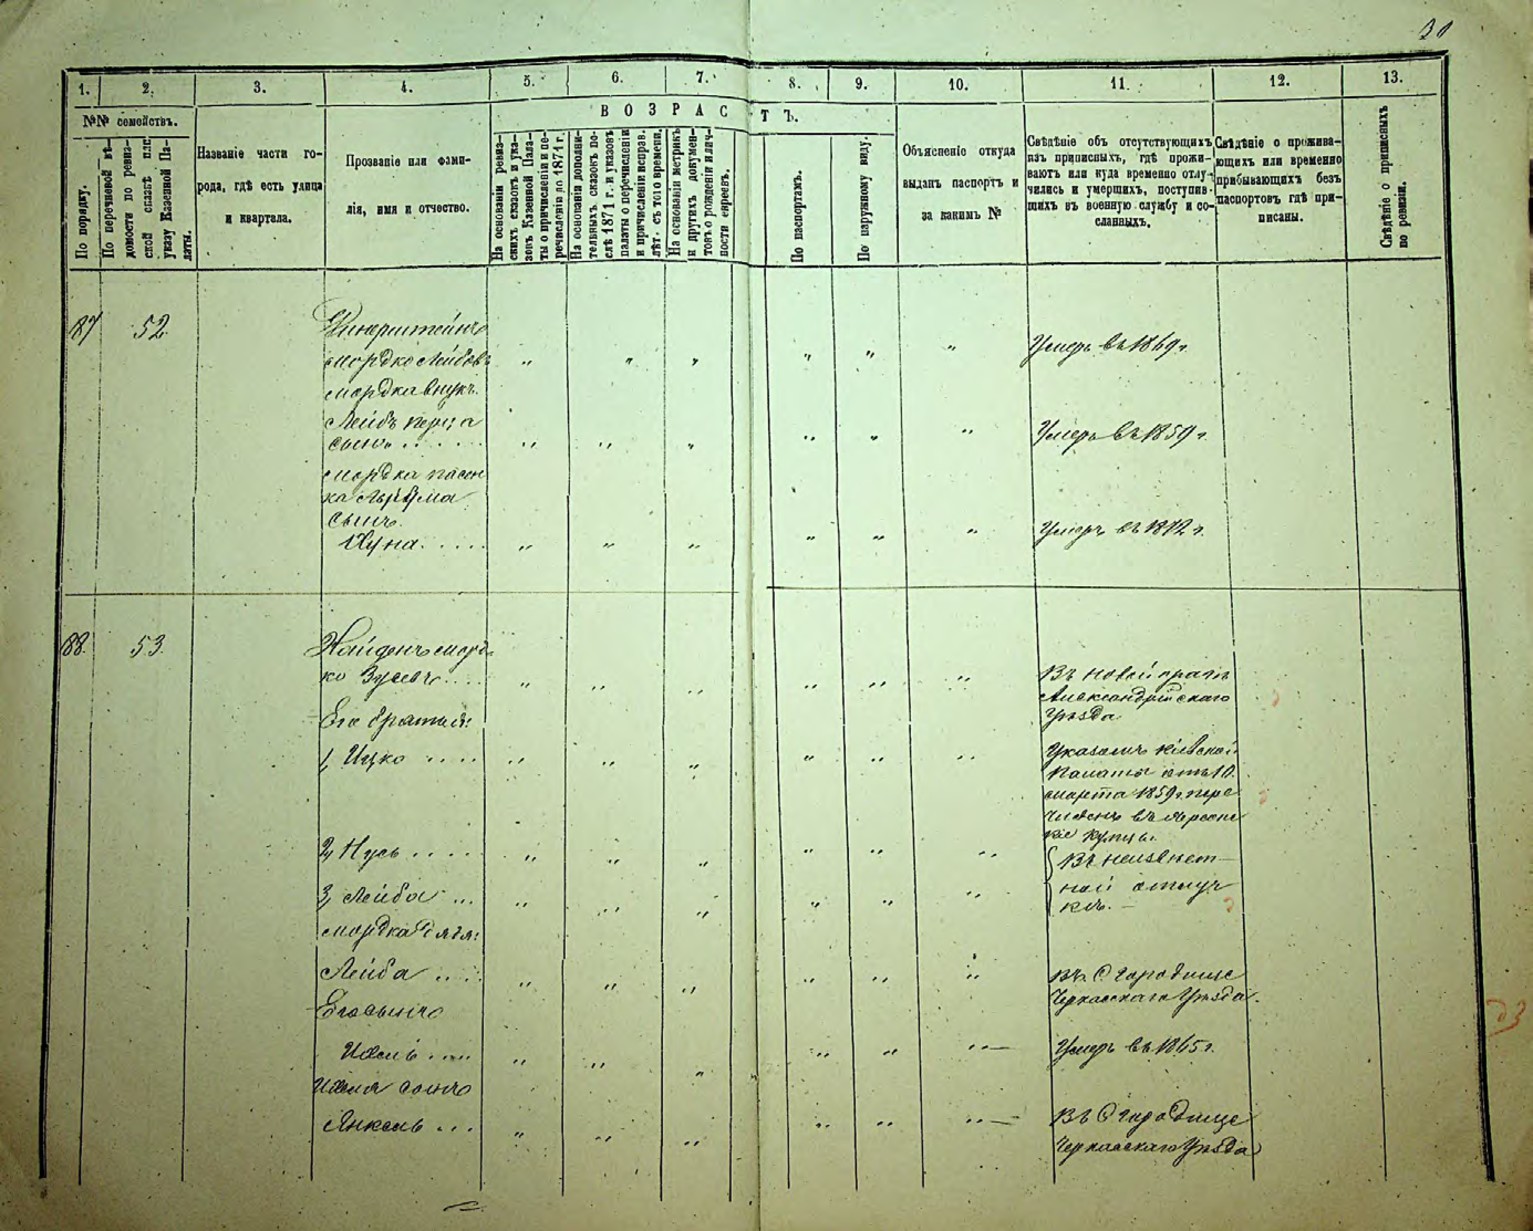 30
1. 2. 3. 4. 5. 6. 7. 8. 9. 10. 11. 12. 13.
№№ семействъ.
По порядку.
По перечневой вѣ-
домости по ревиз-
ской сказкѣ или
указу Казенной Па-
латы.
Названіе части го-
рода, гдѣ есть улица
и квартала.
Прозваніе или фами-
лія, имя и отчество.
ВОЗРАСТЪ.
На основаніи ревиз-
скихъ сказокъ и ука-
зовъ Казенной Пала-
ты о причисленіи и пе-
речисленіи до 1871 г.
На основаніи дополни-
тельныхъ сказокъ по-
слѣ 1871 г. и указовъ
палаты о перечисленіи
и причисленіи исправ.
лѣт. съ того времени.
На основаніи метрикъ
и другихъ докумен-
товъ о рожденіи и лич-
ности евреевъ.
По паспортамъ.
По наружному виду.
Объясненіе откуда
выданъ паспортъ и
за какимъ №
Свѣдѣніе объ отсутствующихъ
изъ приписныхъ, гдѣ прожи-
ваютъ или куда временно отлу-
чились и умершихъ, поступив-
шихъ въ военную службу и со-
сланныхъ.
Свѣдѣніе о прожива-
ющихъ или временно
прибывающихъ безъ
паспортовъ гдѣ при-
писаны.
Свѣдѣніе о приписныхъ
по ревизіи.
87 52
Мордко Лейбовъ " " " " " " Умеръ въ 1869 г.
Мордка внукъ.
Лейбъ Перца
сынъ . . . . . " " " " " " Умеръ въ 1859 г.
Мордка пасын
ка
сынъ.
Нуна . . . . " " " " " " Умеръ въ 1872 г.
88. 53.
Найденъ Морд-
ко Зусевъ . . . . " " " " " " Въ Новой Прагѣ
Александрійскаго
Уѣзда
Его братья:
1, Ицко . . . . " " " " " " Указомъ Кіевской
Палаты отъ 10
марта 1859 г. пере
численъ въ
кіе купцы.
2, Нусь . . . . " " " " " " Въ неизвѣст-
3, Лейба . . . " " " " " " ной отлуч-
кѣ. —
Мордка дядя:
Лейба . . . . " " " " " " Въ Городище
Черкасскаго Уѣзда.
Его сынъ
. . . . " " " " " " — Умеръ въ 1865 г.
сынъ
Янкель . . . " " " " " " — Въ Городище
Черкасскаго Уѣзда